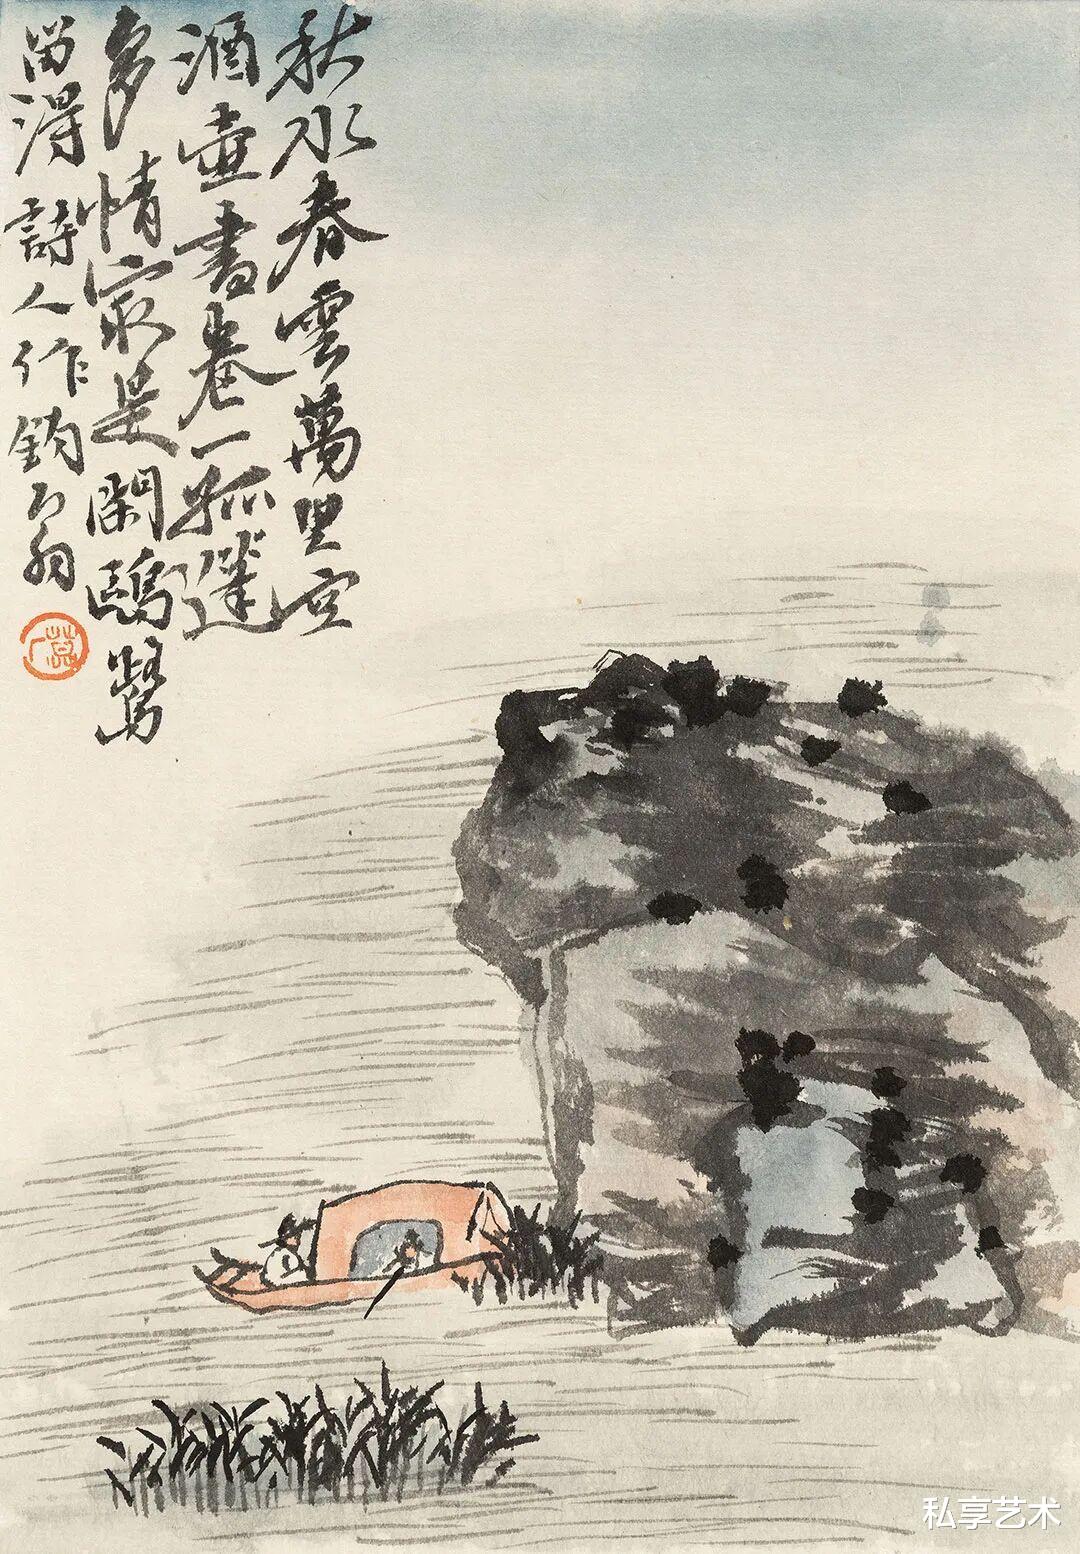 秋水春雲萬里空
酒壺書卷一孤篷
多情最是閑鷗鷺
留得詩人作釣翁
私享艺术